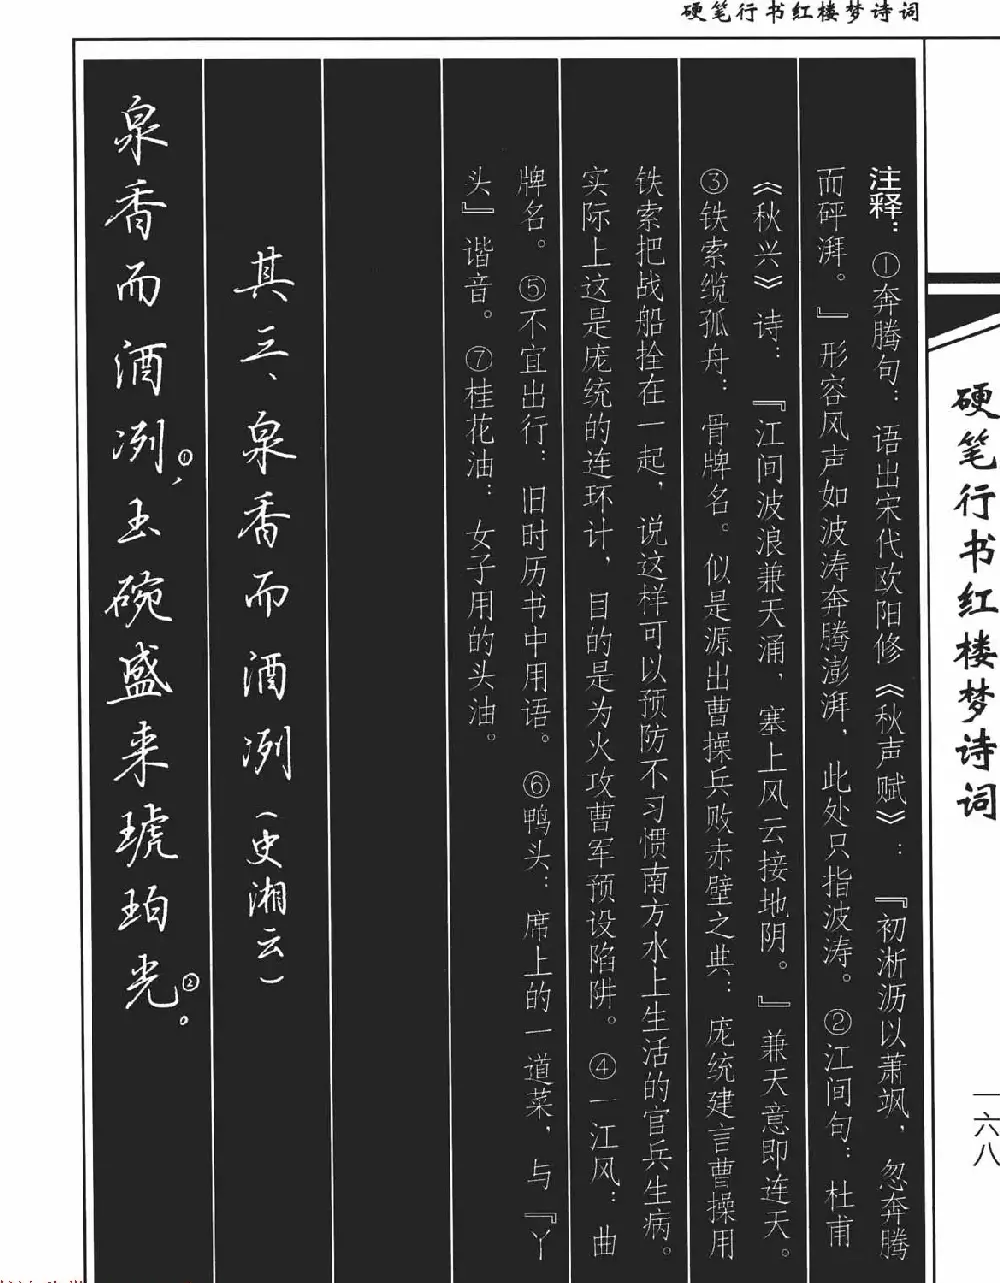 硬笔行书红楼梦诗词
注释：①奔腾句：语出宋代欧阳修《秋声赋》：『初淅沥以萧飒，忽奔腾
而砰湃。』形容风声如波涛奔腾澎湃，此处只指波涛。②江间句：杜甫
《秋兴》诗：『江间波浪兼天涌，塞上风云接地阴。』兼天意即连天。
③铁索缆孤舟：骨牌名。似是源出曹操兵败赤壁之典：庞统建言曹操用
铁索把战船拴在一起，说这样可以预防不习惯南方水上生活的官兵生病。
实际上这是庞统的连环计，目的是为火攻曹军预设陷阱。④一江风：曲
牌名。⑤不宜出行：旧时历书中用语。⑥鸭头：席上的一道菜，与『丫
头』谐音。⑦桂花油：女子用的头油。
其三、泉香而酒冽（史湘云）
泉香而酒冽①，玉碗盛来琥珀光②。
硬笔行书红楼梦诗词
一六八